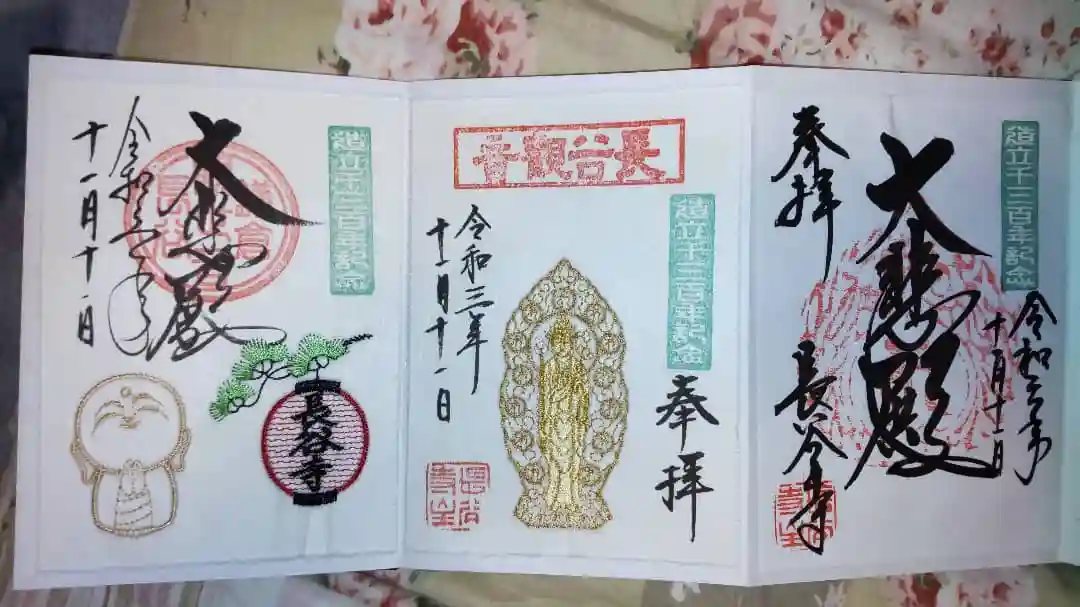 造立千三百年記念
大悲殿
令和三年
十一月十一日
長谷寺
長谷觀音
造立千三百年記念
奉拝
令和三年
十一月十一日
造立千三百年記念
令和三年
十一月十一日
大悲殿
奉拝
長谷寺